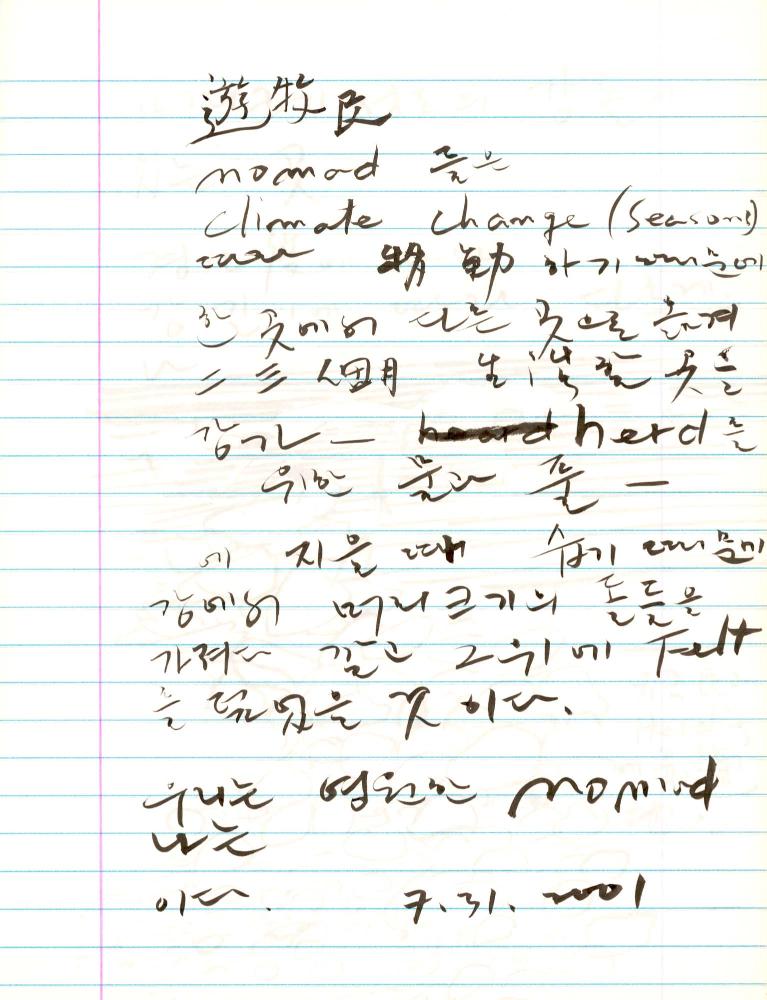 遊牧民
nomad 들은
climate change (seasons)
따라 移動 하기 때문에
한 곳에서 다른 곳으로 옮겨
二 三 個月 生活할 곳을
강가 — herd 를
위한 물과 풀 —
에 지을 때 습기 때문에
강에서 머리크기의 돌들을
가져다 깔고 그위에 Felt
를 덮었을 것 이다.
우리는 영원한 nomad
나는
이다. 7.31. 2001